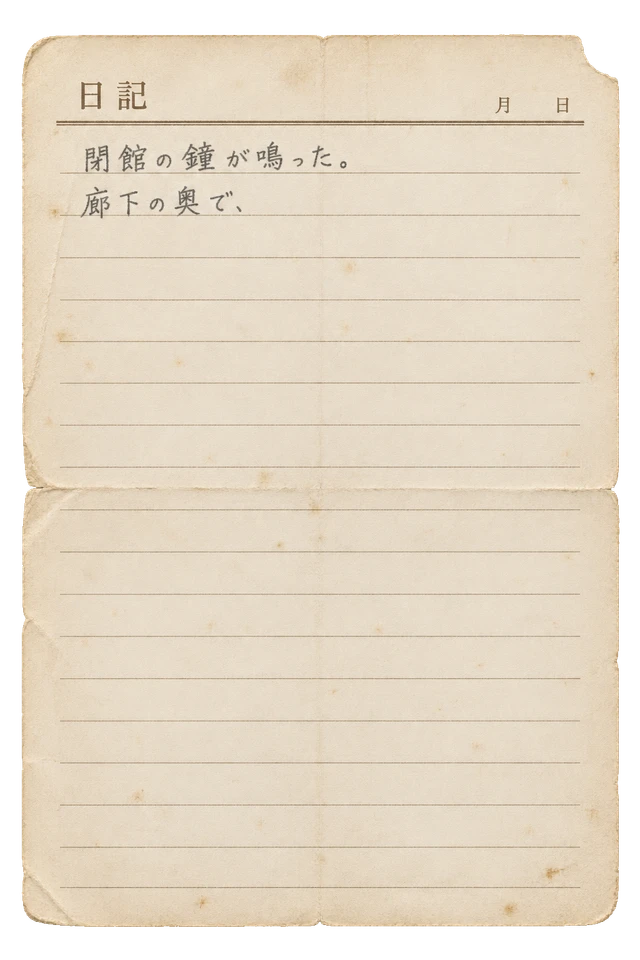 日記
月 日
閉館の鐘が鳴った。
廊下の奥で、